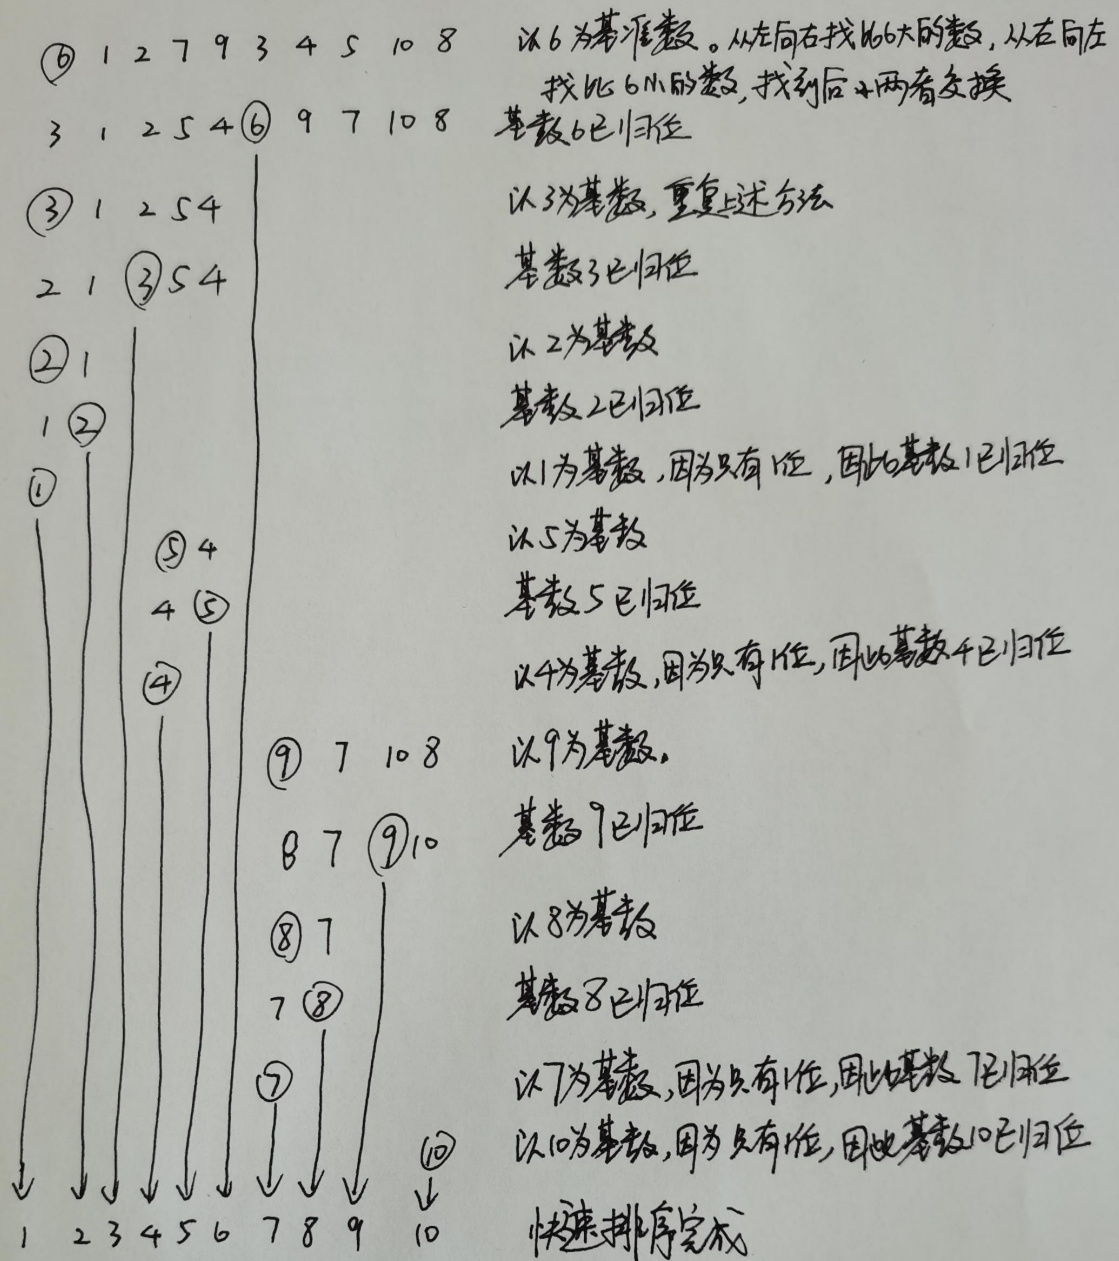 6 1 2 7 9 3 4 5 10 8 以6为基准数。从左向右找比6大的数,从右向左
找比6小的数,找到后两者交换
3 1 2 5 4 6 9 7 10 8 基数6已归位
3 1 2 5 4 以3为基数,重复上述方法
2 1 3 5 4 基数3已归位
2 1 以2为基数
1 2 基数2已归位
1 以1为基数,因为只有1位,因此基数1已归位
5 4 以5为基数
4 5 基数5已归位
4 以4为基数,因为只有1位,因此基数4已归位
9 7 10 8 以9为基数。
8 7 9 10 基数9已归位
8 7 以8为基数
7 8 基数8已归位
7 以7为基数,因为只有1位,因此基数7已归位
10 以10为基数,因为只有1位,因此基数10已归位
1 2 3 4 5 6 7 8 9 10 快速排序完成